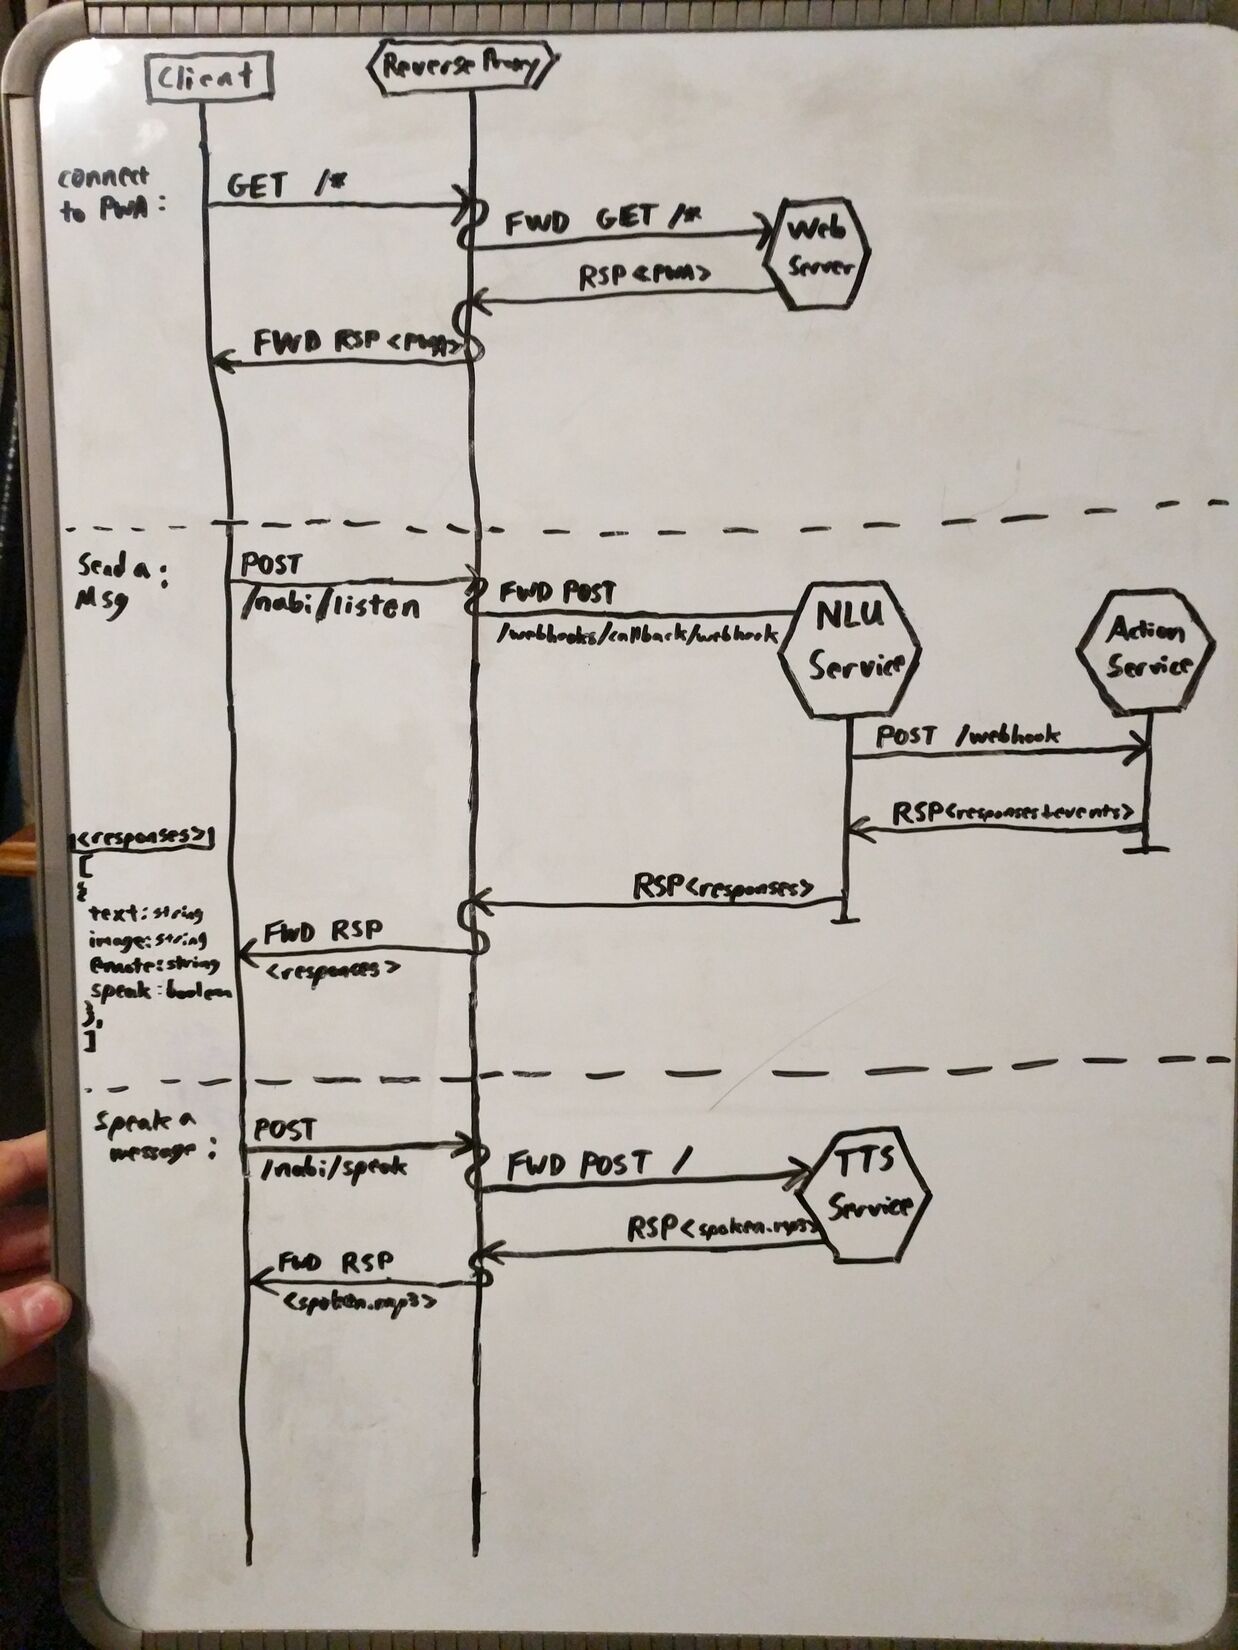 Client
Reverse Proxy
connect
to PWA:
GET /*
FWD GET /*
Web
Server
RSP<PWA>
FWD RSP<PWA>
Send a:
Msg
POST
/nabi/listen
FWD POST
/webhooks/callback/webhook
NLU
Service
Action
Service
POST /webhook
RSP<responses+events>
<responses>
[
{
text:string
image:string
emote:string
speak:boolean
},
]
RSP<responses>
FWD RSP
<responses>
Speak a
message:
POST
/nabi/speak
FWD POST /
TTS
Service
RSP<spoken.mp3>
FWD RSP
<spoken.mp3>